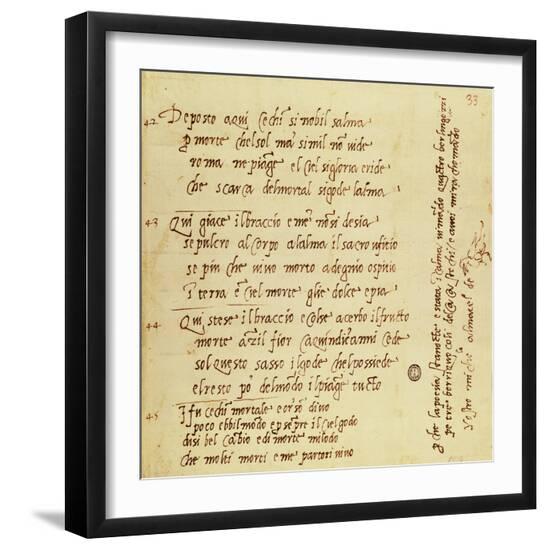 42 Deposto a qui cechi si nobil salma
p morte chel sol ma simil nõ vide
roma ne piãge el ciel si gloria e ride
che scarca del mortal si gode lalma
43 Qui giace il braccio e mẽ nõ si desia
sepulcro al corpo a lalma il sacro ufitio
se piu che vivo morto a degnio ospitio
ĩ terra e ĩ ciel morte glie dolce e pia
44 Qui stese il braccio e colse acerbo il frutto
morte ãzil fior ca quindici anni cede
sol questo sasso il gode chel possiede
el resto po del mõdo il piãge tucto
45 I fu cechĩ mortale e or sõ divo
poco ebbil mõdo e p sẽpre il ciel godo
di si bel cãbio e di morte mi lodo
che molti morti e me partori vivo
33
p che la poesia stanocte e stata ĩ calma vi mãdo quãttro berlingozzi